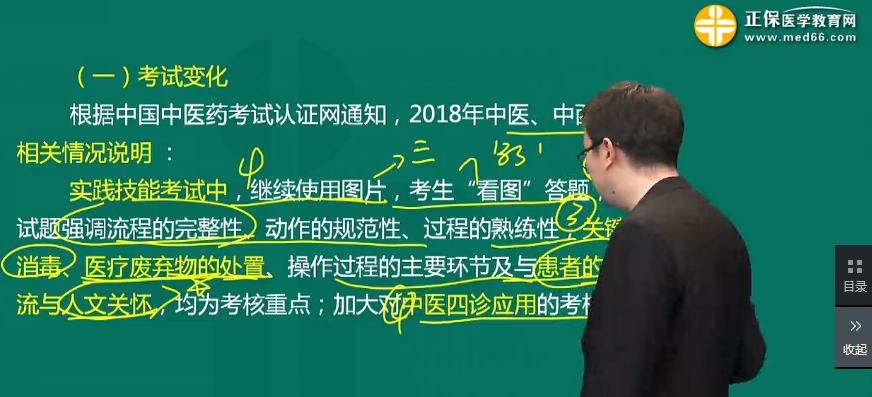 正保医学教育网
www.med66.com
（一）考试变化
根据中国中医药考试认证网通知，2018年中医、中西
相关情况说明 ：
实践技能考试中，继续使用图片，考生“看图”答题，
试题强调流程的完整性、动作的规范性、过程的熟练性，关键
消毒、医疗废弃物的处置、操作过程的主要环节及与患者的
流与人文关怀，均为考核重点；加大对中医四诊应用的考核
三
③
目录
收起